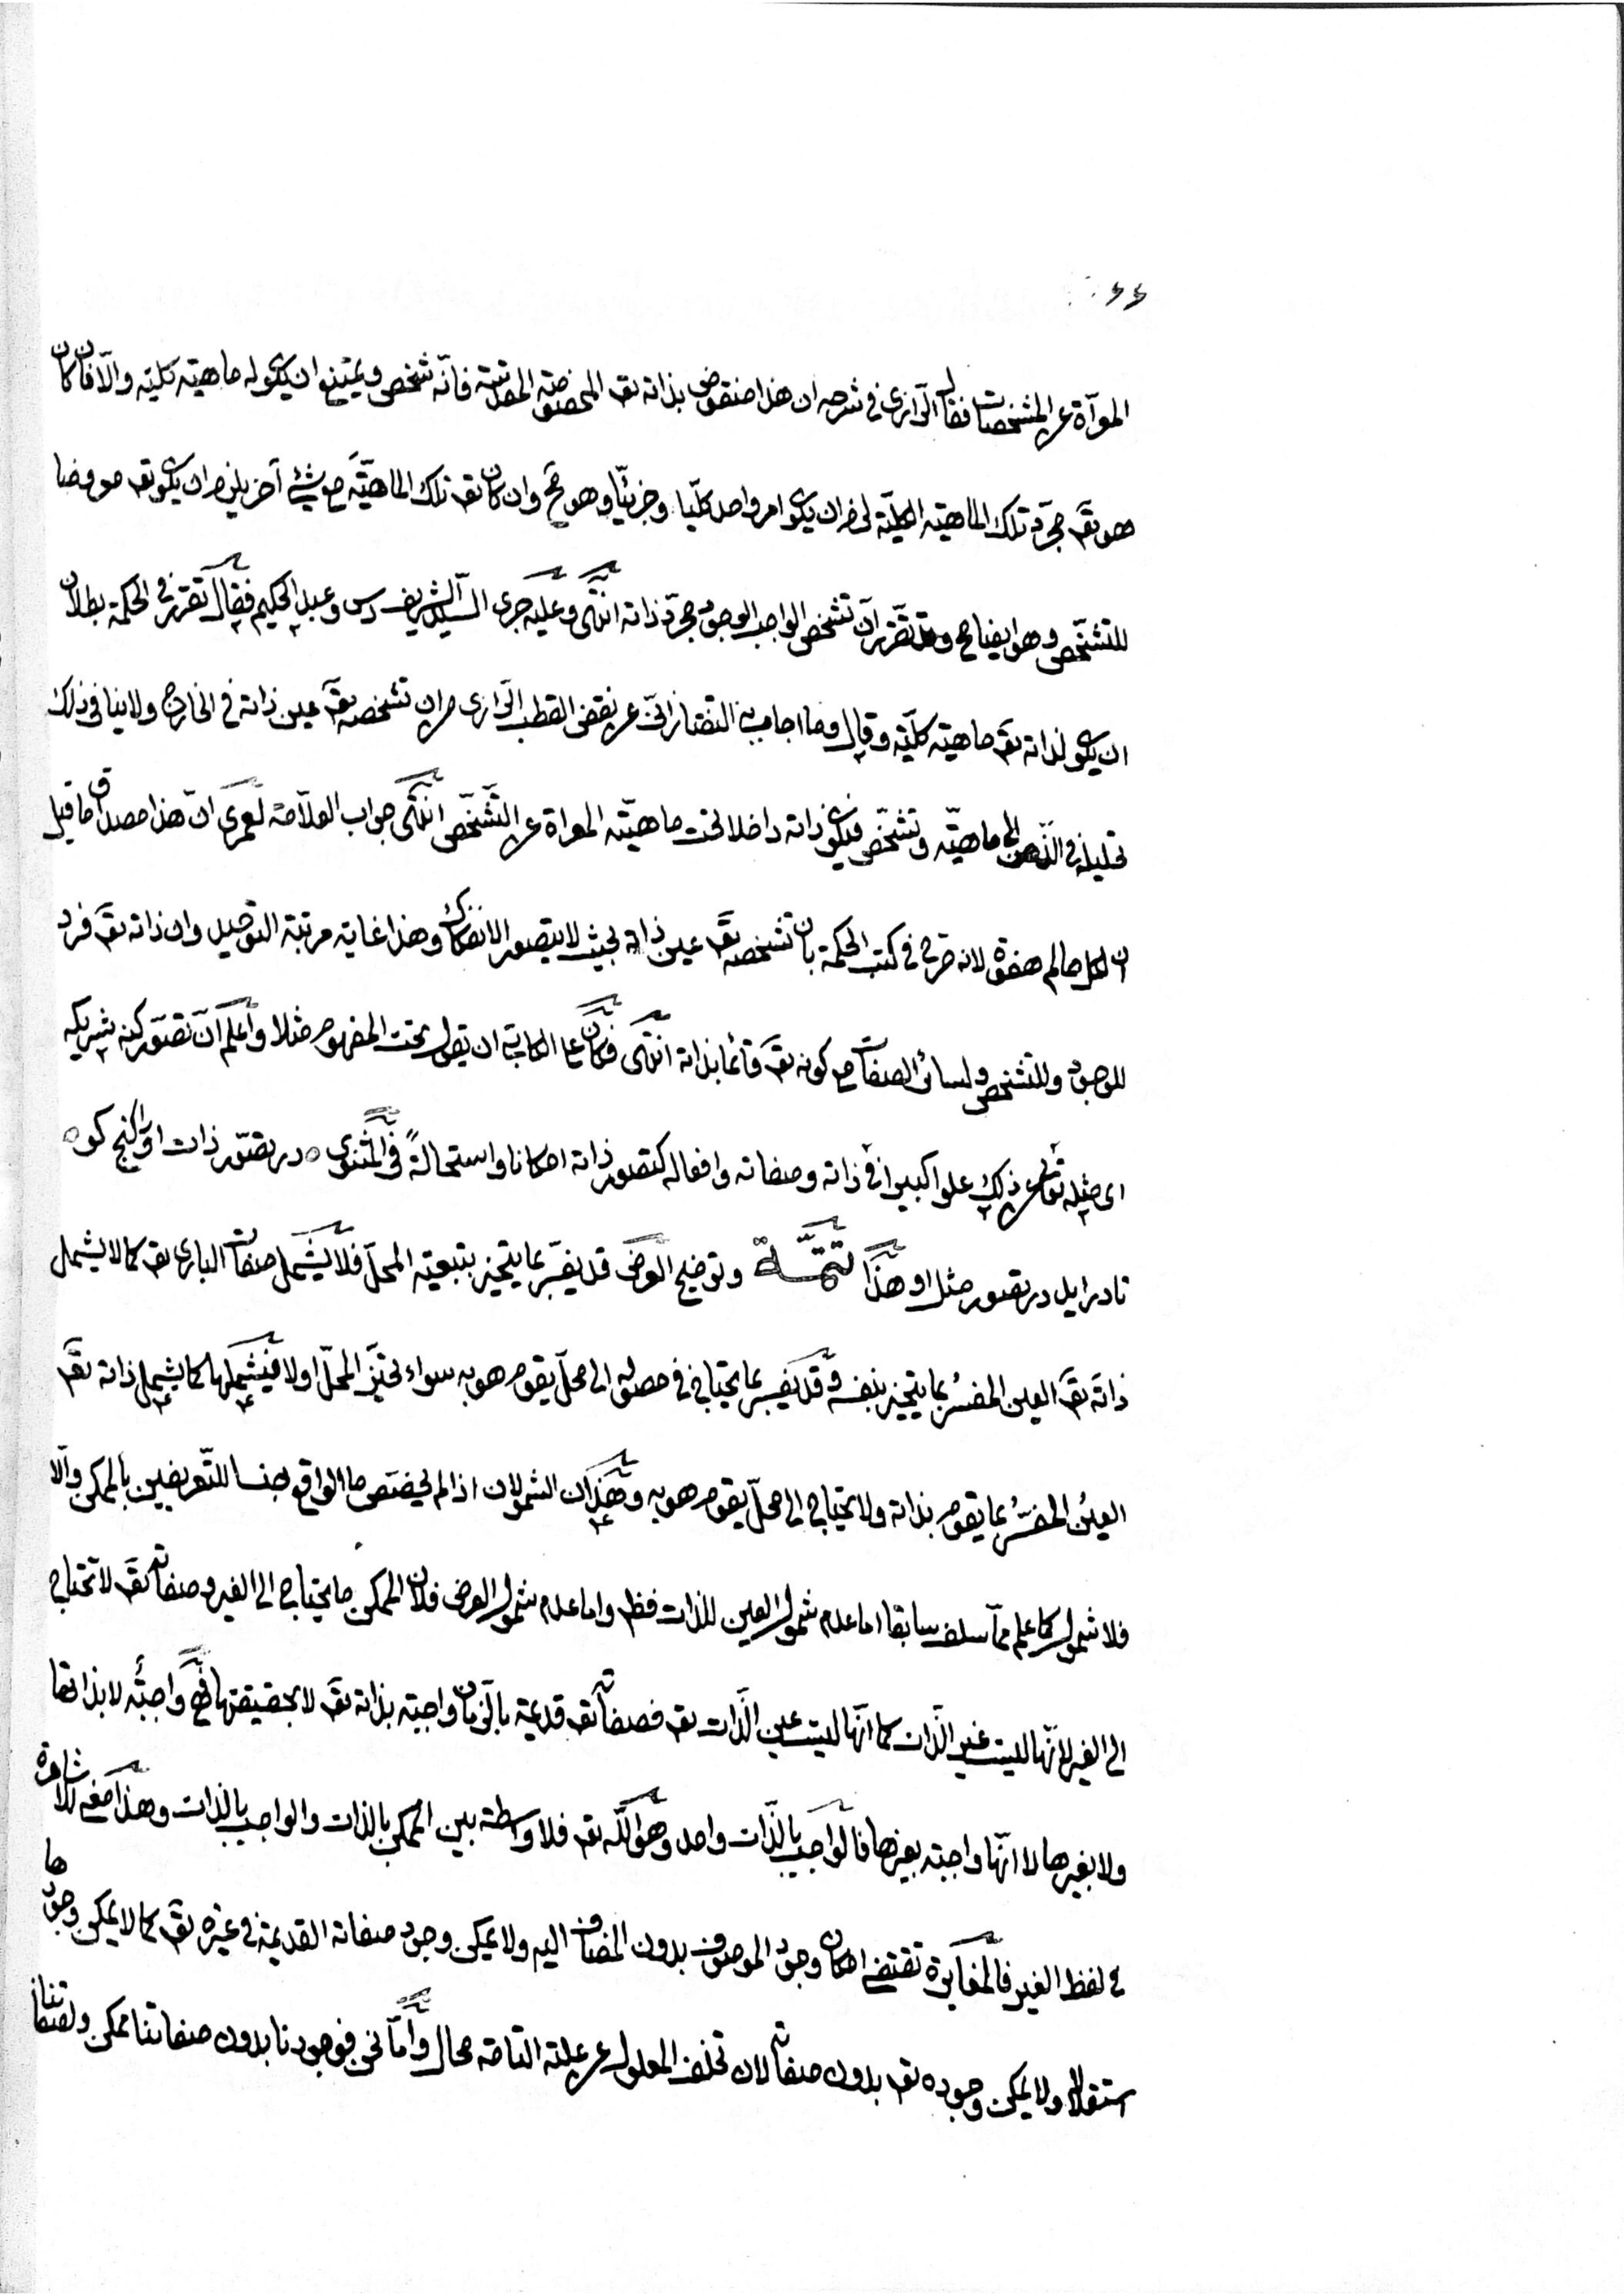 ٤٤
المعرّاة عن المشخصات فقال الرّازى فى شرحه ان هذا منقوض بذاته تعـ المخصوصة المقدسة فانّه شخص ويمتنع ان يكون له ماهيّة كليّة والّا فان كان
هو تعـ مجرّد تلك الماهية الكليّة لزم ان يكون امر واحد كلّيا وجزئيّا وهو مح وان كان تعـ تلك الماهيّة مع شئ آخر يلزم ان يكون تعـ معروضا
للتشخّص وهو ايضا مح وقد تقرّر انّ تشخص الواجب الوجود مجرّد ذاته انتهى وعليه جرى السّيد الشريف قدس وعبد الحكيم فقال تقرّر فى الحكمة بطلان
ان يكون لذاته تعـ ماهيّة كلّية وقال وما اجاب به التفتازانىّ عن نقض القطب الرّازى من ان تشخصه تعـ عين ذاته فى الخارج ولا ينافى ذلك
تحليله فى الذّهن الى ماهيّة وتشخّص فيكون ذاته داخلا تحت ماهيّة المعراة عن التّشخّص انتهى جواب العلّامة لعمرى انّ هذا مصداق ما قيل
ان لكل عالم هفوة لانه صرّح فى كتب الحكمة بان تشخصه تعـ عين ذاته بحيث لا يتصور الانفكاك وهذا غاية مرتبة التوحيد وان ذاته تعـ فرد
للوجود وللتشخص ولسائر الصفات مع كونه تعـ قائما بذاته انتهى فكان على الكاتبى ان يقول تحت المفهوم مثلا واعلم انّ تصوّر كنه شريكه
اى مثله تعالى عن ذلك علوا كبيرا فى ذاته وصفاته وافعاله كتصور ذاته امكانا واستحالةً فى المثنوى ٥ در تصوّر ذات او را كنج كو ٥
تا در ايد در تصور مثل او هذا تتمّة وتوضيح العرض قد يفسّر بما يتحيّز بتبعيّة المحلّ فلا يشمل صفات البارى تعـ كما لا يشمل
ذاته تعـ العين المفسّر بما يتحيز بنفسه وقد يفسر بما يحتاج فى حصوله الى محلّ يقوم هو به سواء تحيّز المحلّ اولا فيشملها كما يشمل ذاته تعـ
العينُ المفسّرُ بما يقوم بذاته ولا يحتاج الى محلّ يقوم هو به وهذان الشمولان اذا لم يختصّ ما الواقع جنسا للتّعريفين بالممكن والّا
فلا شمول كما علم ممّا سلف سابقا اما عدم شمول العين للذات فظ واما عدم شمول العرض فلان الممكن ما يحتاج الى الغير وصفاته تعـ لا تحتاج
الى الغير لانّها ليست غير الذّات كما انّها ليست عين الذّات تعـ فصفاته تعـ قديمة بالزّمان واجبة بذاته تعـ لا بحقيقتها فهى واجبة لا بذاتها
ولا بغيرها لا انّها واجبة بغيرها فالواجب بالذّات واحد وهو اللّه تعـ فلا واسطة بين الممكن بالذات والواجب بالذات وهذا معنى للاشارة
فى لفظ الغير فالمغايرة تقتضى امكان وجود الموصوف بدون المضاف اليه ولا يمكن وجود صفاته القديمة فى غيره تعـ كما لا يمكن وجودها
استقلالا ولا يمكن وجوده تعـ بدون صفاته لان تخلف المعلول عن علته التامة محال وامّا نحن فوجودنا بدون صفاتنا ممكن ولصفاتنا